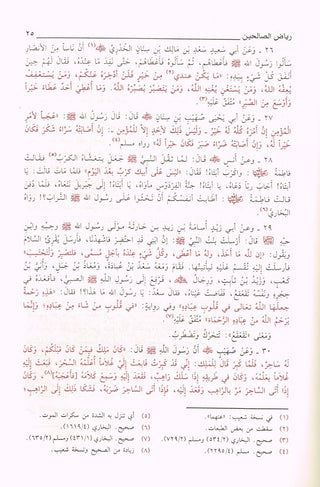 رياض الصالحين ٢٥
٢٦ - وَعَنْ أبي سَعِيدٍ سَعْدِ بْنِ مَالِكِ بْنِ سِنَانٍ الْخُدْرِيِّ ﷺ(١) أَنَّ نَاساً مِنَ الأَنْصَارِ
سَأَلُوا رَسُولَ اللهِ ﷺ فَأَعْطَاهُم، ثُمَّ سَأَلُوهُ فَأَعْطَاهُمْ، حَتَّى نَفِدَ مَا عِنْدَهُ، فَقَالَ لَهُمْ حِينَ
أَنْفَقَ كُلَّ شَيْءٍ بِيَدِهِ: «مَا يَكُنْ عِنْدِي(٢) مِنْ خَيْرٍ فَلَنْ أَدَّخِرَهُ عَنْكُمْ، وَمَنْ يَسْتَعْفِفْ
يُعِفَّهُ اللهُ، وَمَنْ يَسْتَغْنِ يُغْنِهِ اللهُ، وَمَنْ يَتَصَبَّرْ يُصَبِّرْهُ اللهُ. وَمَا أُعْطِيَ أَحَدٌ عَطَاءً خَيْراً
وَأَوْسَعَ مِنَ الصَّبْرِ» مُتَّفَقٌ عَلَيْهِ(٣).
٢٧ - وَعَنْ أبي يَحْيَى صُهَيْبِ بْنِ سِنَانٍ قَالَ: قَالَ رَسُولُ اللهِ ﷺ: «عَجَباً لأَمْرِ
الْمُؤْمِنِ إِنَّ أَمْرَهُ كُلَّهُ لَهُ خَيْرٌ - وَلَيْسَ ذَلِكَ لأَحَدٍ إِلاَّ لِلْمُؤْمِنِ -: إِنْ أَصَابَتْهُ سَرَّاءُ شَكَرَ فَكَانَ
خَيْراً لَهُ، وَإِنْ أَصَابَتْهُ ضَرَّاءُ صَبَرَ فَكَانَ خَيْراً لَهُ» رواه مسلم(٤).
٢٨ - وَعَنْ أنَسٍ قَالَ: لَمَّا ثَقُلَ النَّبِيُّ ﷺ جَعَلَ يَتَغَشَّاهُ الْكَرْبُ(٥) فَقَالَتْ
فَاطِمَةُ: وَاكَرْبَ أَبَتَاهُ! فَقَالَ: «لَيْسَ عَلَى أَبِيكِ كَرْبٌ بَعْدَ الْيَوْمِ» فَلَمَّا مَاتَ قَالَتْ: يَا
أَبَتَاهُ! أَجَابَ رَبّاً دَعَاهُ، يَا أَبَتَاهُ! جَنَّةُ الْفِرْدَوْسِ مَأْوَاهُ، يَا أَبَتَاهُ! إِلَى جِبْرِيلَ نَنْعَاهُ، فَلَمَّا دُفِنَ
قَالَتْ فَاطِمَةُ: أَطَابَتْ أَنْفُسُكُمْ أَنْ تَحْثُوا عَلَى رَسُولِ اللهِ ﷺ التُّرَابَ؟! رَوَاهُ
الْبُخَارِي(٦).
٢٩ - وَعَنْ أَبِي زَيْدٍ أُسَامَةَ بْنِ زَيْدِ بْنِ حَارِثَةَ مَوْلَى رَسُولِ اللهِ ﷺ وَحِبِّهِ وَابْنِ
حِبِّهِ قَالَ: أَرْسَلَتْ بِنْتُ النَّبِيِّ ﷺ: إِنَّ ابْنِي قَدِ احْتُضِرَ فَاشْهَدْنَا، فَأَرْسَلَ يُقْرِئُ السَّلاَمَ
وَيَقُولُ: «إِنَّ للهِ مَا أَخَذَ، وَلَهُ مَا أَعْطَى، وَكُلُّ شَيْءٍ عِنْدَهُ بِأَجَلٍ مُسَمًّى، فَلْتَصْبِرْ وَلْتَحْتَسِبْ»
فَأَرْسَلَتْ إِلَيْهِ تُقْسِمُ عَلَيْهِ لَيَأْتِيَنَّهَا. فَقَامَ وَمَعَهُ سَعْدُ بْنُ عُبَادَةَ، وَمُعَاذُ بْنُ جَبَلٍ، وَأُبَيُّ بْنُ
كَعْبٍ، وَزَيْدُ بْنُ ثَابِتٍ، وَرِجَالٌ، فَرُفِعَ إِلَى رَسُولِ اللهِ ﷺ الصَّبِيُّ، فَأَقْعَدَهُ فِي
حِجْرِهِ وَنَفْسُهُ تَقَعْقَعُ، فَفَاضَتْ عَيْنَاهُ، فَقَالَ سَعْدٌ: يَا رَسُولَ اللهِ مَا هَذَا؟! فقال: «هَذِهِ رَحْمَةٌ
جَعَلَهَا اللهُ تَعَالَى فِي قُلُوبِ عِبَادِهِ» وفي رواية: «فِي قُلُوبِ مَنْ شَاءَ مِنْ عِبَادِهِ؛ وَإِنَّمَا
يَرْحَمُ اللهُ مِنْ عِبَادِهِ الرُّحَمَاءَ» مُتَّفَقٌ عَلَيْهِ(٧).
وَمَعْنَى «تَقَعْقَعُ»: تَتَحَرَّكُ وَتَضْطَرِبُ.
٣٠ - وَعَنْ صُهَيْبٍ أَنَّ رَسُولَ اللهِ ﷺ قَالَ: «كَانَ مَلِكٌ فِيمَنْ كَانَ قَبْلَكُمْ، وَكَانَ
لَهُ سَاحِرٌ، فَلَمَّا كَبِرَ قَالَ لِلْمَلِكِ: إِنِّي قَدْ كَبِرْتُ فَابْعَثْ إِلَيَّ غُلاَماً أُعَلِّمْهُ السِّحْرَ، فَبَعَثَ إِلَيْهِ
غُلاَماً يُعَلِّمُهُ، وَكَانَ فِي طَرِيقِهِ إِذَا سَلَكَ رَاهِبٌ، فَقَعَدَ إِلَيْهِ وَسَمِعَ كَلاَمَهُ (فَأَعْجَبَهُ)(٨)، وَكَانَ
إِذَا أَتَى السَّاحِرَ مَرَّ بِالرَّاهِبِ وَقَعَدَ إِلَيْهِ، فَإِذَا أَتَى السَّاحِرَ ضَرَبَهُ، فَشَكَا ذَلِكَ إِلَى الرَّاهِبِ،
(١) في نسخة شعيب: «عنهما». (٥) أي تنزل به الشدة من سكرات الموت.
(٢) سقطت من بعض الطبعات. (٦) صحيح. البخاري (١٦١٩/٤).
(٣) صحيح. البخاري (٥٣٤/٢) ومسلم (٧٢٩/٢). (٧) صحيح. البخاري (٤٣١/١) ومسلم (٦٣٥/٢).
(٤) صحيح. مسلم (٢٢٩٥/٤). (٨) زيادة من الصحيح ونسخة شعيب.